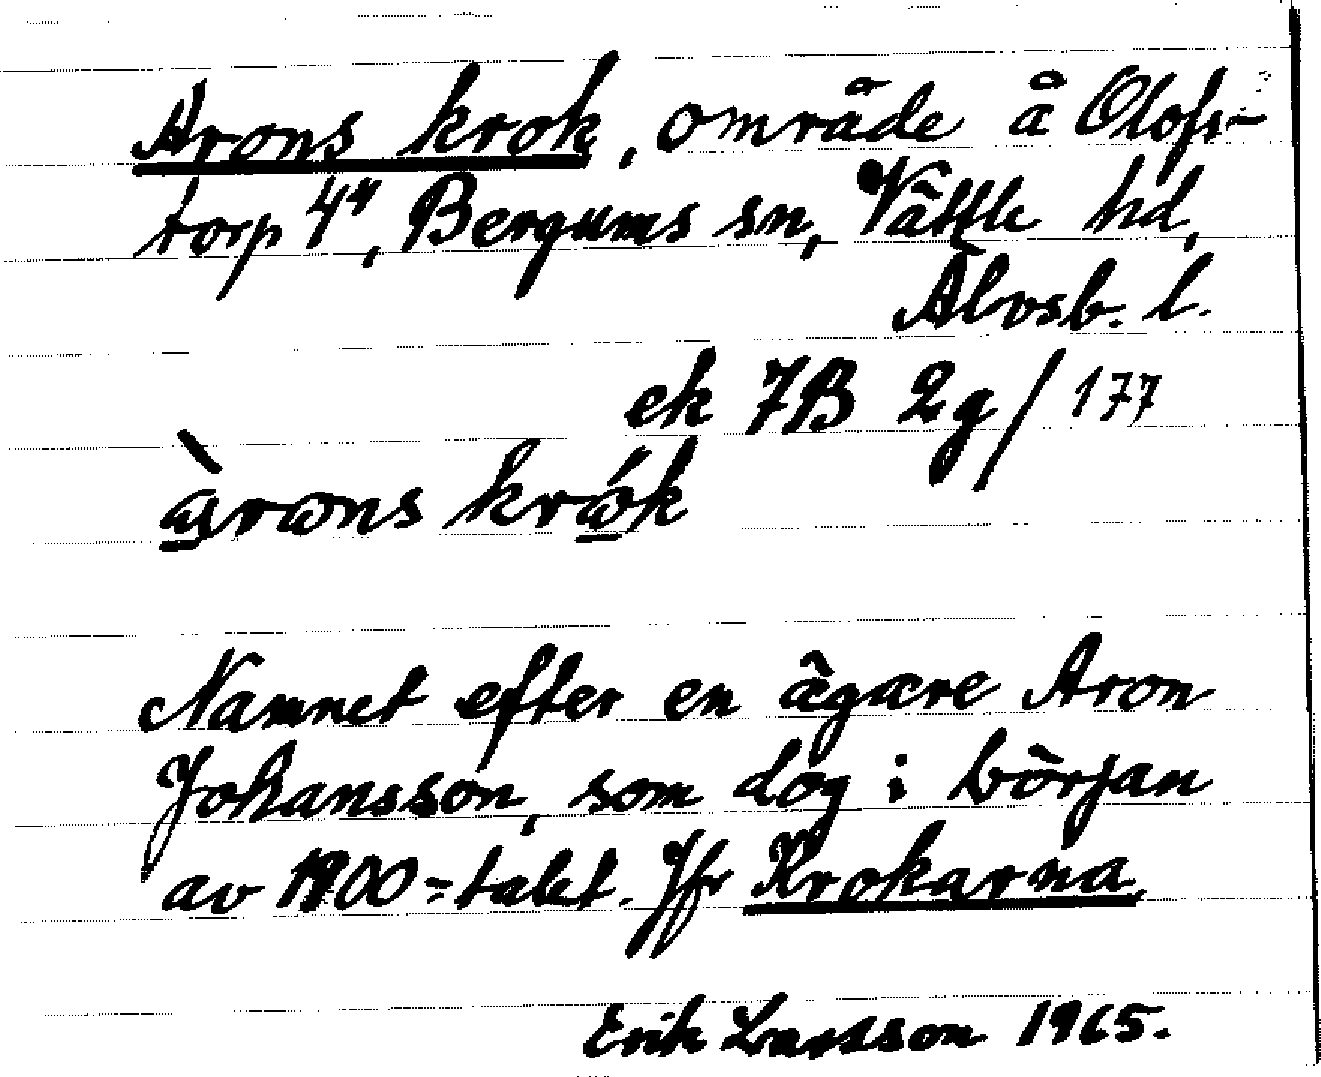 Arons krok, område å Olofs-
torp 4⁴, Bergums sn, Vättle hd,
Älvsb. l.
ek 7B 2g/177
àrωns krǿk
Namnet efter en ägare Aron
Johansson, som dog i början
av 1900-talet. Jfr Krokarna.
Erik Larsson 1965.